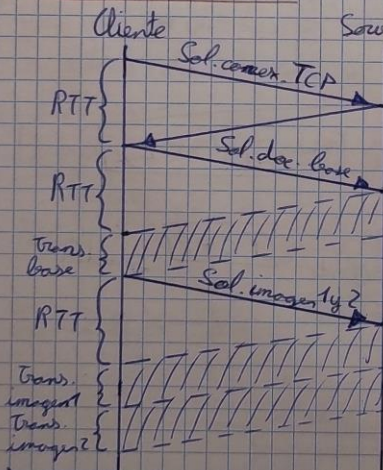 Cliente
Sol. conex. TCP
RTT
Sol. doc. base
RTT
Trans.
base
Sol. images 1 y 2
RTT
Trans.
imagen1
Trans.
images 2